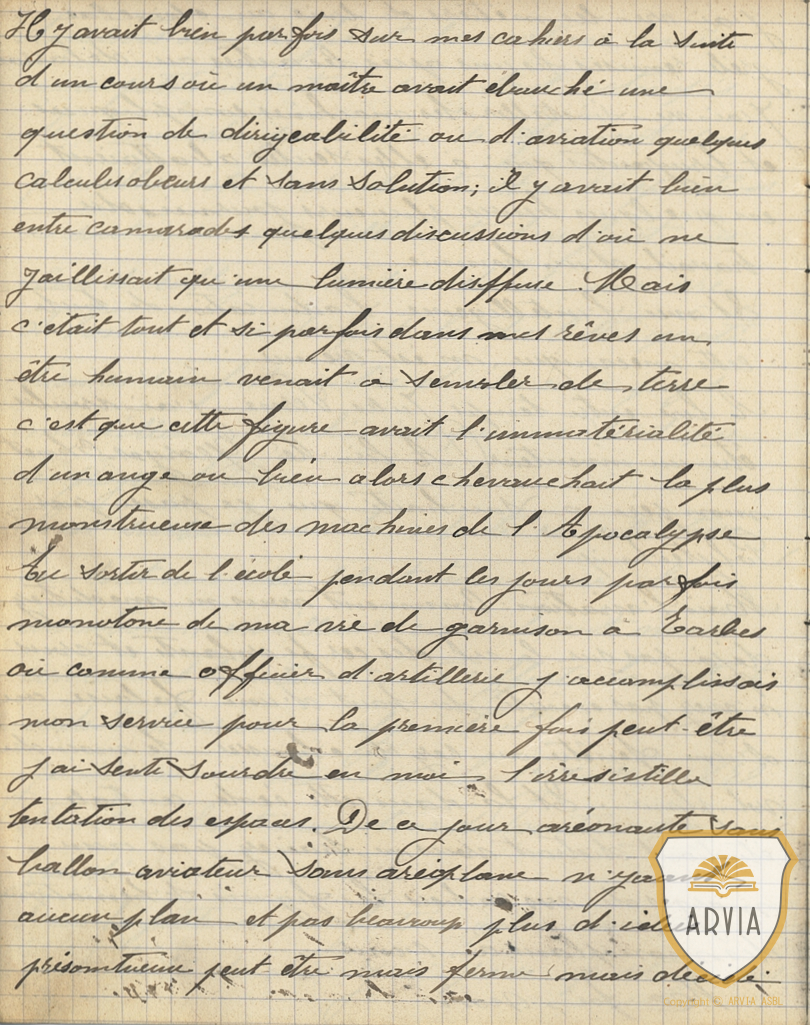 Il y avait bien parfois sur mes cahiers à la suite
d'un cours où un maître avait ébauché une
question de dirigeabilité ou d'aviation quelques
calculs obscurs et sans solution; il y avait bien
entre camarades quelques discussions d'où ne
jaillissait qu'une lumière disffuse. Mais
c'était tout et si parfois dans mes rêves un
être humain venait à sembler de terre
c'est que cette figure avait l'immatérialité
d'un ange ou bien alors chevauchait la plus
monstrueuse des machines de l'Apocalypse
Au sortir de l'école pendant les jours parfois
monotone de ma vie de garnison à Tarbes
où comme officier d'artillerie j'accomplissais
mon service pour la première fois peut-être
j'ai senti sourdre en moi l'irrésistible
tentation des espaces. De ce jour aréonaute sans
ballon aviateur sans aréoplane n'y
aucun plan et pas beaucoup plus
présomtueux peut être mais ferme mais décidé
ARVIA
Copyright © ARVIA ASBL